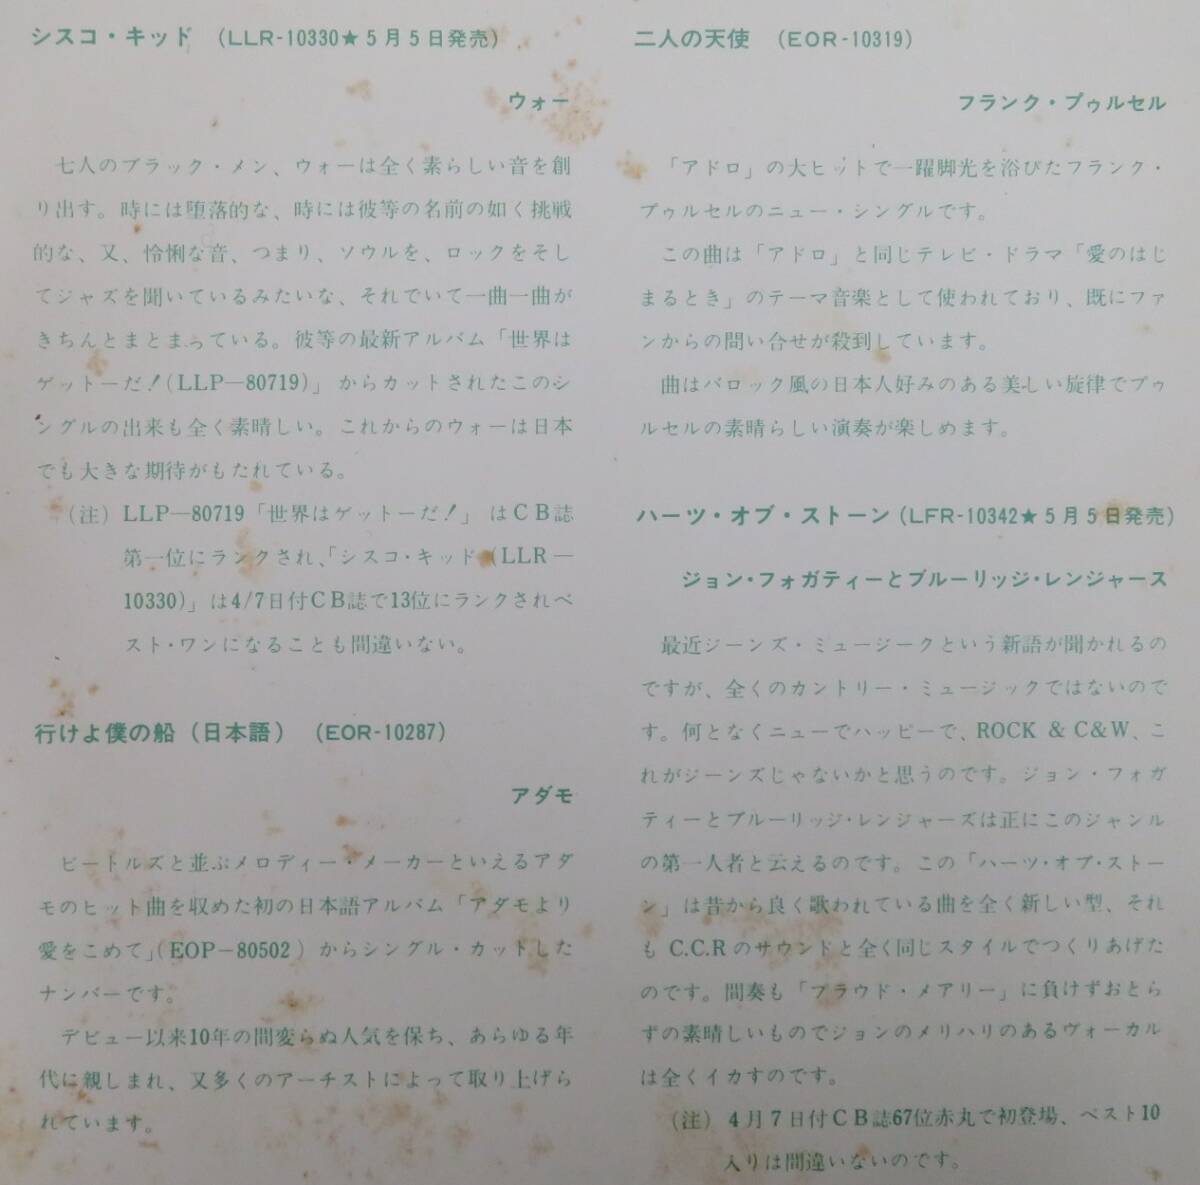 シスコ・キッド (LLR-10330★5月5日発売)
ウォー
七人のブラック・メン、ウォーは全く素らしい音を創
り出す。時には堕落的な、時には彼等の名前の如く挑戦
的な、又、怜悧な音、つまり、ソウルを、ロックをそし
てジャズを聞いているみたいな、それでいて一曲一曲が
きちんとまとまっている。彼等の最新アルバム「世界は
ゲットーだ!(LLP—80719)」からカットされたこのシ
ングルの出来も全く素晴しい。これからのウォーは日本
でも大きな期待がもたれている。
(注) LLP—80719「世界はゲットーだ!」はCB誌
第一位にランクされ、「シスコ・キッド(LLR—
10330)」は4/7日付CB誌で13位にランクされベ
スト・ワンになることも間違いない。
行けよ僕の船(日本語) (EOR-10287)
アダモ
ビートルズと並ぶメロディー・メーカーといえるアダ
モのヒット曲を収めた初の日本語アルバム「アダモより
愛をこめて」(EOP-80502)からシングル・カットした
ナンバーです。
デビュー以来10年の間変らぬ人気を保ち、あらゆる年
代に親しまれ、又多くのアーチストによって取り上げら
れています。
二人の天使 (EOR-10319)
フランク・プゥルセル
「アドロ」の大ヒットで一躍脚光を浴びたフランク・
プゥルセルのニュー・シングルです。
この曲は「アドロ」と同じテレビ・ドラマ「愛のはじ
まるとき」のテーマ音楽として使われており、既にファ
ンからの問い合せが殺到しています。
曲はバロック風の日本人好みのある美しい旋律でプゥ
ルセルの素晴らしい演奏が楽しめます。
ハーツ・オブ・ストーン(LFR-10342★5月5日発売)
ジョン・フォガティーとブルーリッジ・レンジャース
最近ジーンズ・ミュージークという新語が聞かれるの
ですが、全くのカントリー・ミュージックではないので
す。何となくニューでハッピーで、ROCK & C&W、こ
れがジーンズじゃないかと思うのです。ジョン・フォガ
ティーとブルーリッジ・レンジャーズは正にこのジャンル
の第一人者と云えるのです。この「ハーツ・オブ・ストー
ン」は昔から良く歌われている曲を全く新しい型、それ
も C.C.Rのサウンドと全く同じスタイルでつくりあげた
のです。間奏も「プラウド・メアリー」に負けずおとら
ずの素晴しいものでジョンのメリハリのあるヴォーカル
は全くイカすのです。
(注) 4月7日付CB誌67位赤丸で初登場、ベスト10
入りは間違いないのです。